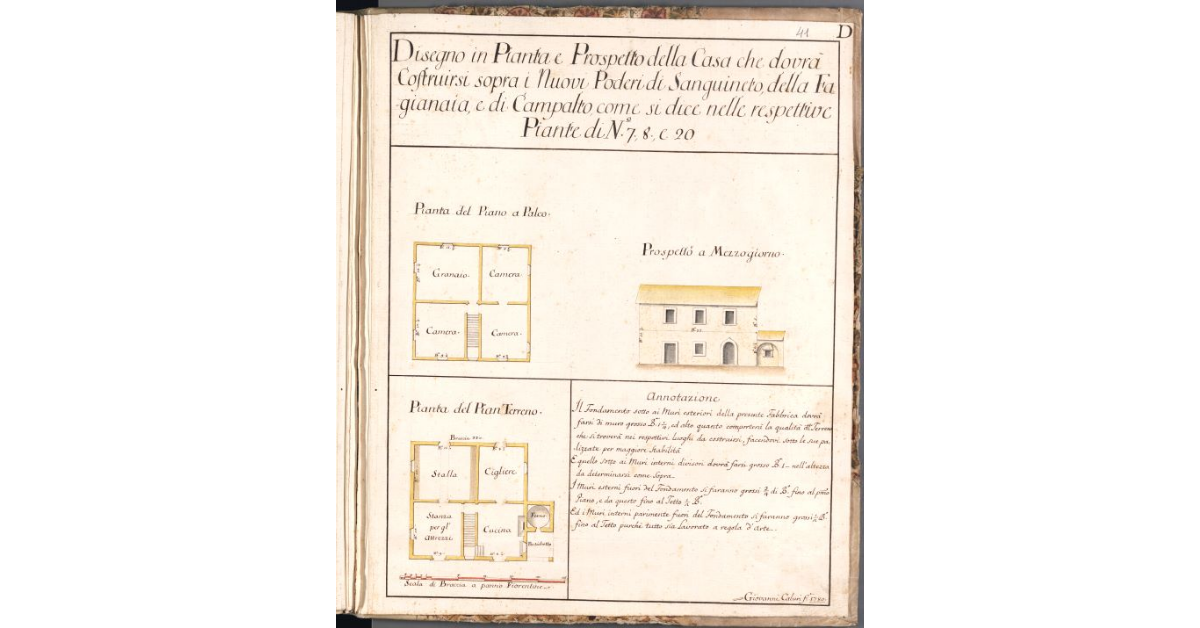 41
D
Disegno in Pianta e Prospetto della Casa che dovrà
Costruirsi sopra i Nuovi Poderi di Sanguineto, della Fa
gianaia, e di Campalto, come si dice nelle respettive
Piante di N.º 7, 8, e 20
Pianta del Piano a Palco.
Granaio.
Camera
Camera.
Camera.
Prospetto a Mezzogiorno.
Pianta del Pian Terreno.
Braccia
Stalla
Cigliere
Stanza
per gl'
Attrezzi.
Cucina
Forno
Scala di Braccia a panno Fiorentine
Annotazione
Il Fondamento sotto ai Muri esteriori della presente Fabbrica dovrà
farsi di muro grosso B. 1¼, ed alto quanto comporterà la qualità del Terreno
che si troverà nei respettivi luoghi da costruirsi, facendovi sotto le sue pa
lizzate per maggiore stabilità
E quello sotto ai Muri interni divisori dovrà farsi grosso B. 1 nell'altezza
da determinarsi come sopra
I Muri esterni fuori del Fondamento si faranno grossi ¾ di B. fino al primo
Piano, e da questo fino al Tetto B.
Ed i Muri interni parimente fuori del Fondamento si faranno grossi ½ B.
fino al Tetto purchè tutto sia lavorato a regola d'Arte.
Giovanni